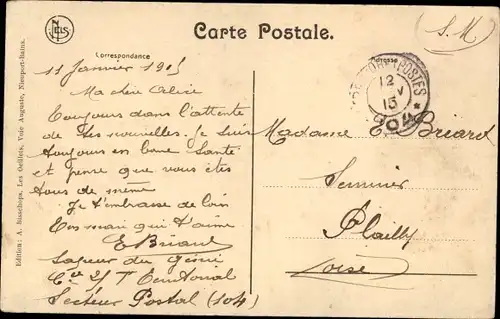 NELS
Carte Postale.
(S.M)
Correspondance
Adresse
Edition: A. Bisschops, Les Oeillets, Voie Auguste, Nieuport-Bains.
POSTES
12
15
*
11 Janvier 1915
Ma chère Alice
Toujours dans l'attente
de tes nouvelles. Je suis
toujours en bonne santé
et pense que vous êtes
tous de même
Je t'embrasse de loin
Ton mari qui t'aime
E Briard
Sapeur du génie
Cie 2/5 T Territorial
Secteur Postal (104)
Madame E Briard
Plailly
(Oise)